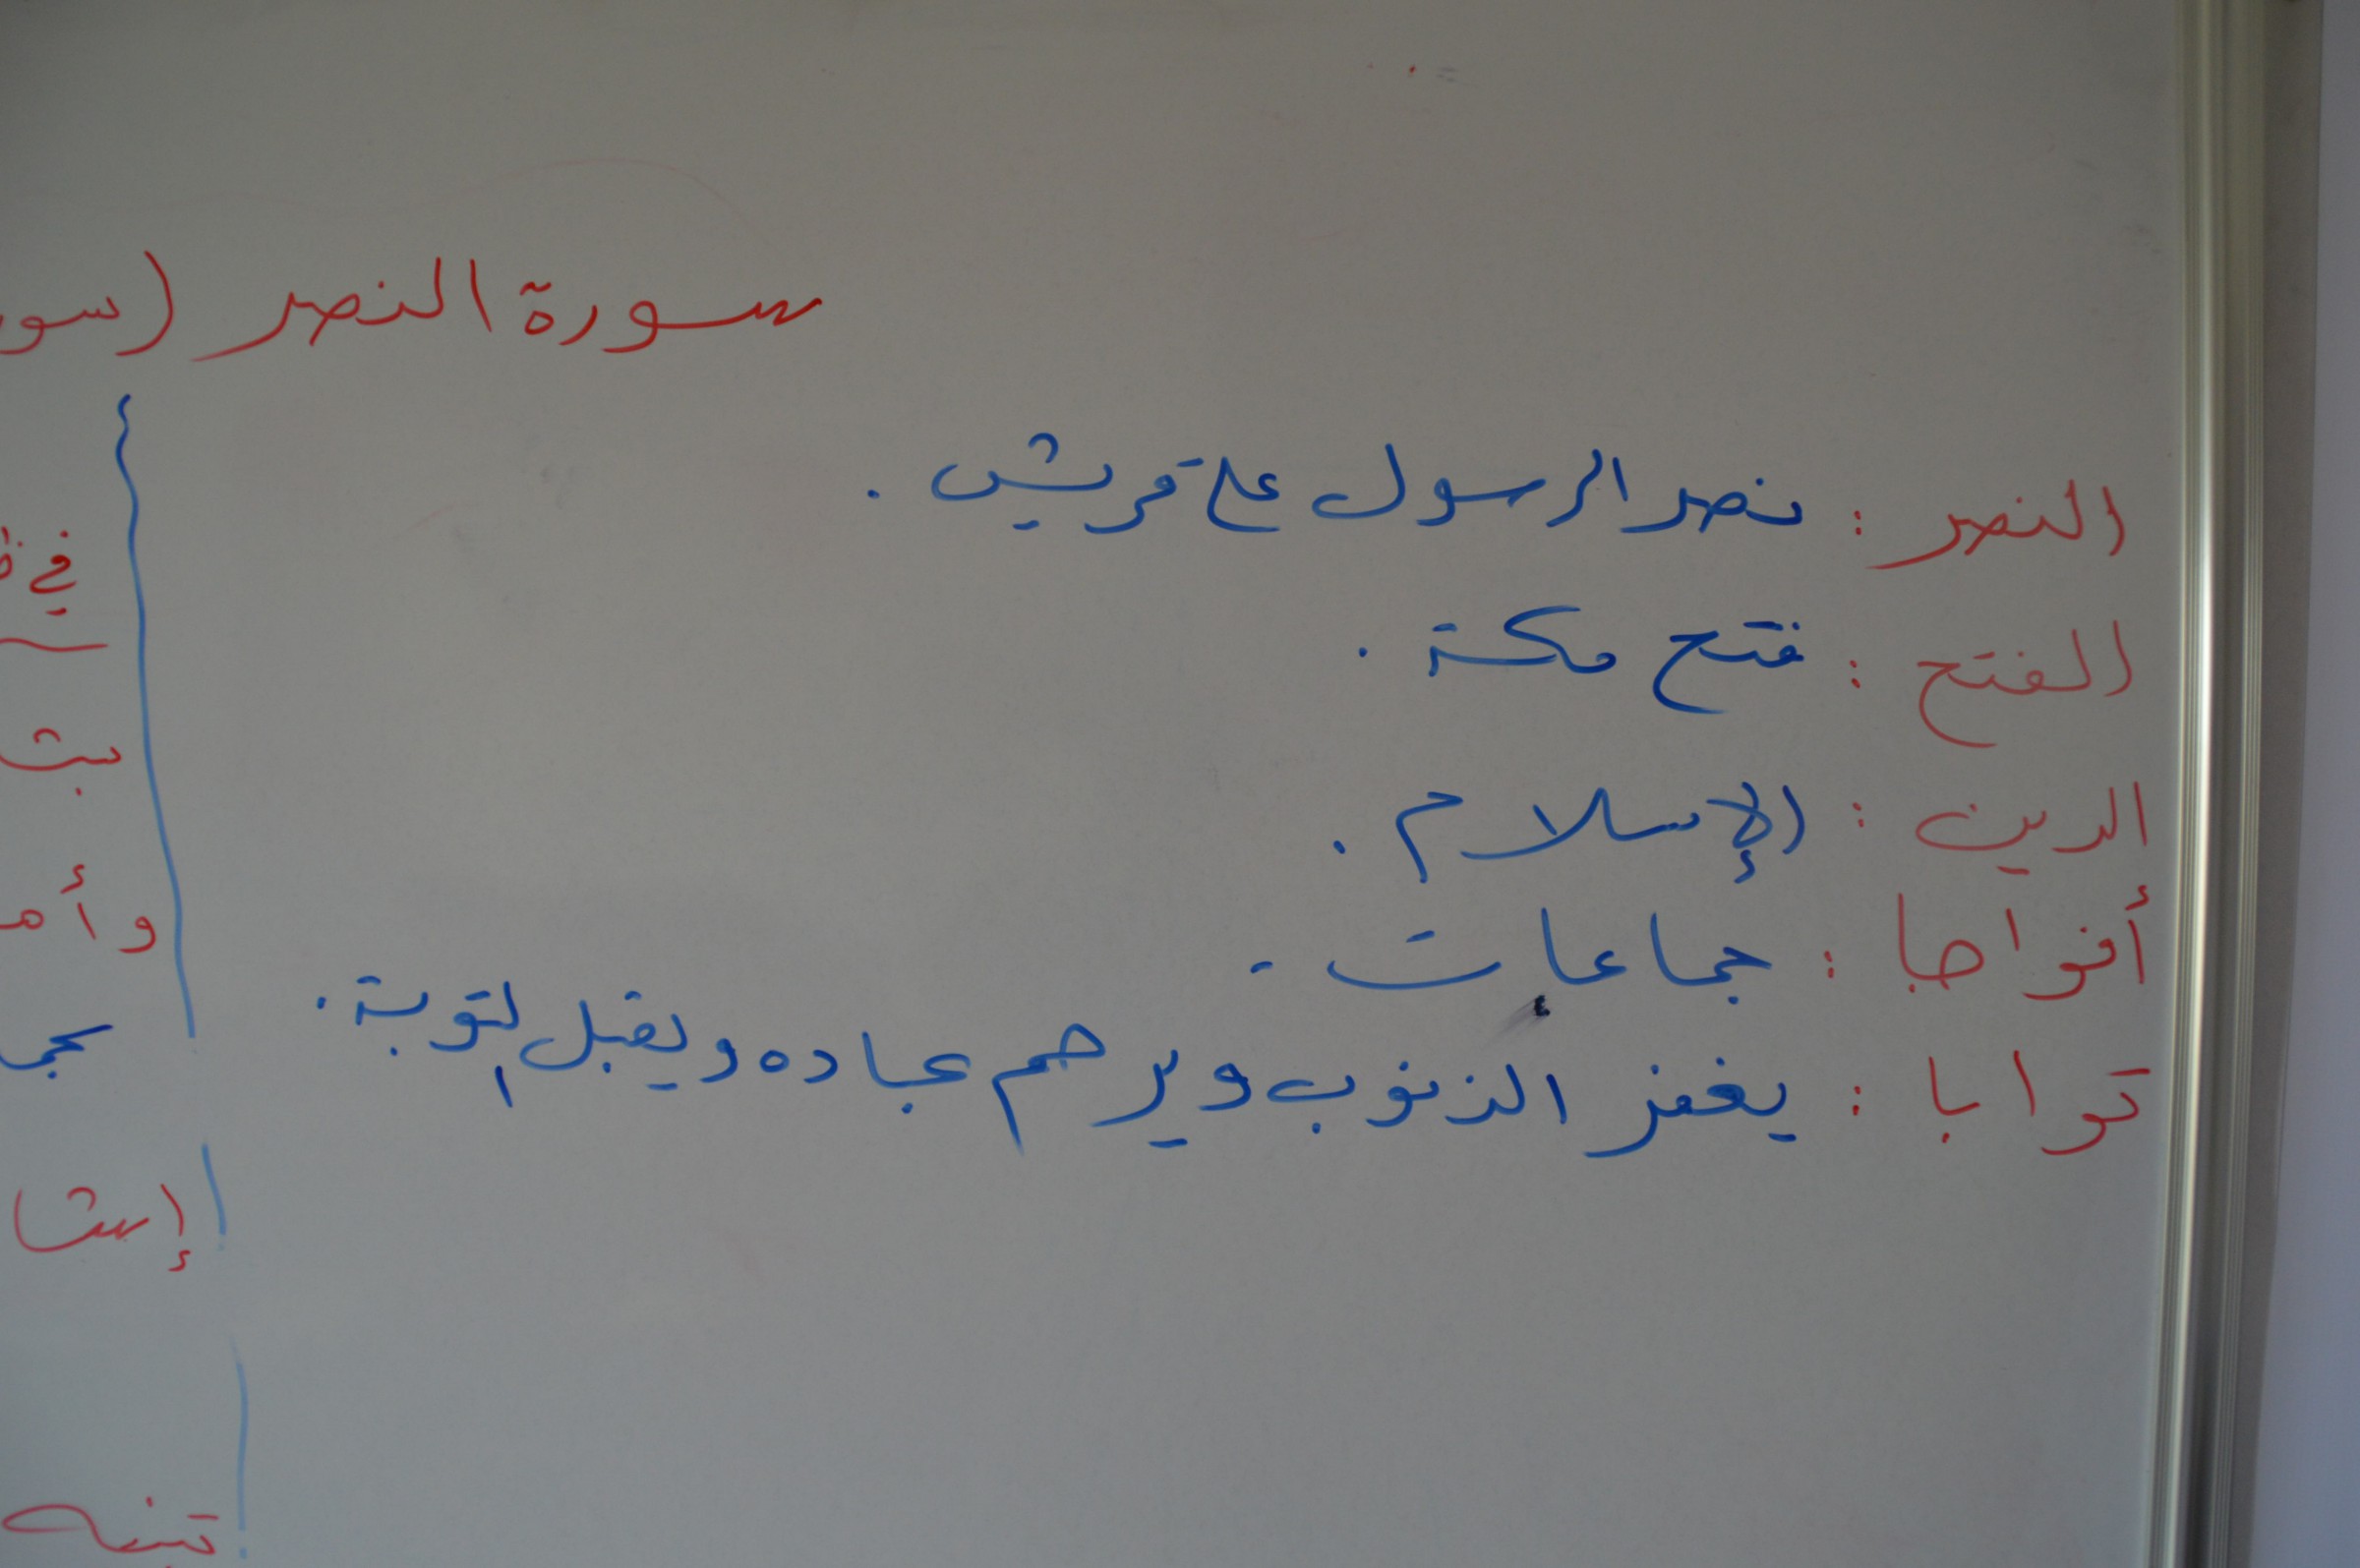 سورة النصر (سو
النصر : نصر الرسول على قريش .
الفتح : فتح مكة .
الدين : الإسلام .
أفواجا : جماعات .
توابا : يغفر الذنوب ويرحم عباده ويقبل التوبة .
في
وأم
إشا